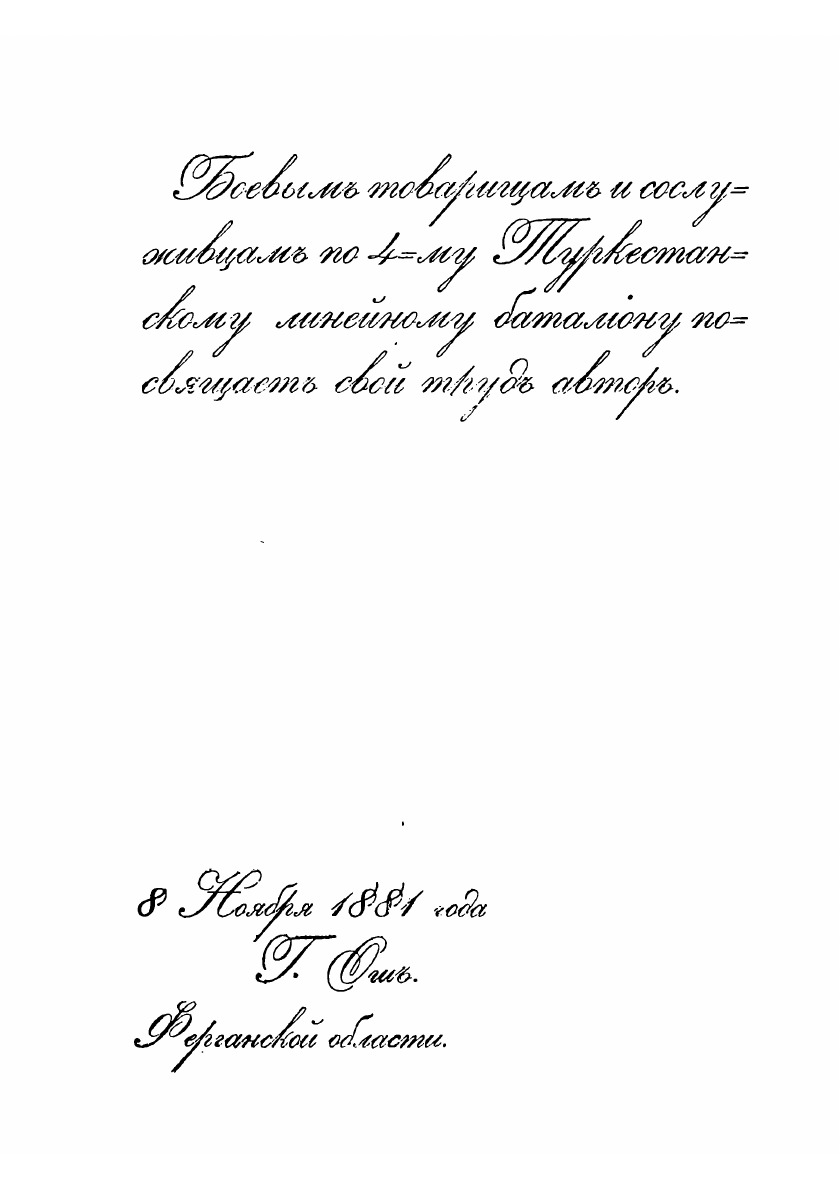 Боевымъ товарищамъ и сослу=
живцамъ по 4=му Туркестан=
скому линейному баталіону по=
свящаетъ свой трудъ авторъ.
8 Ноября 1881 года
Г. Ошъ.
Ферганской области.